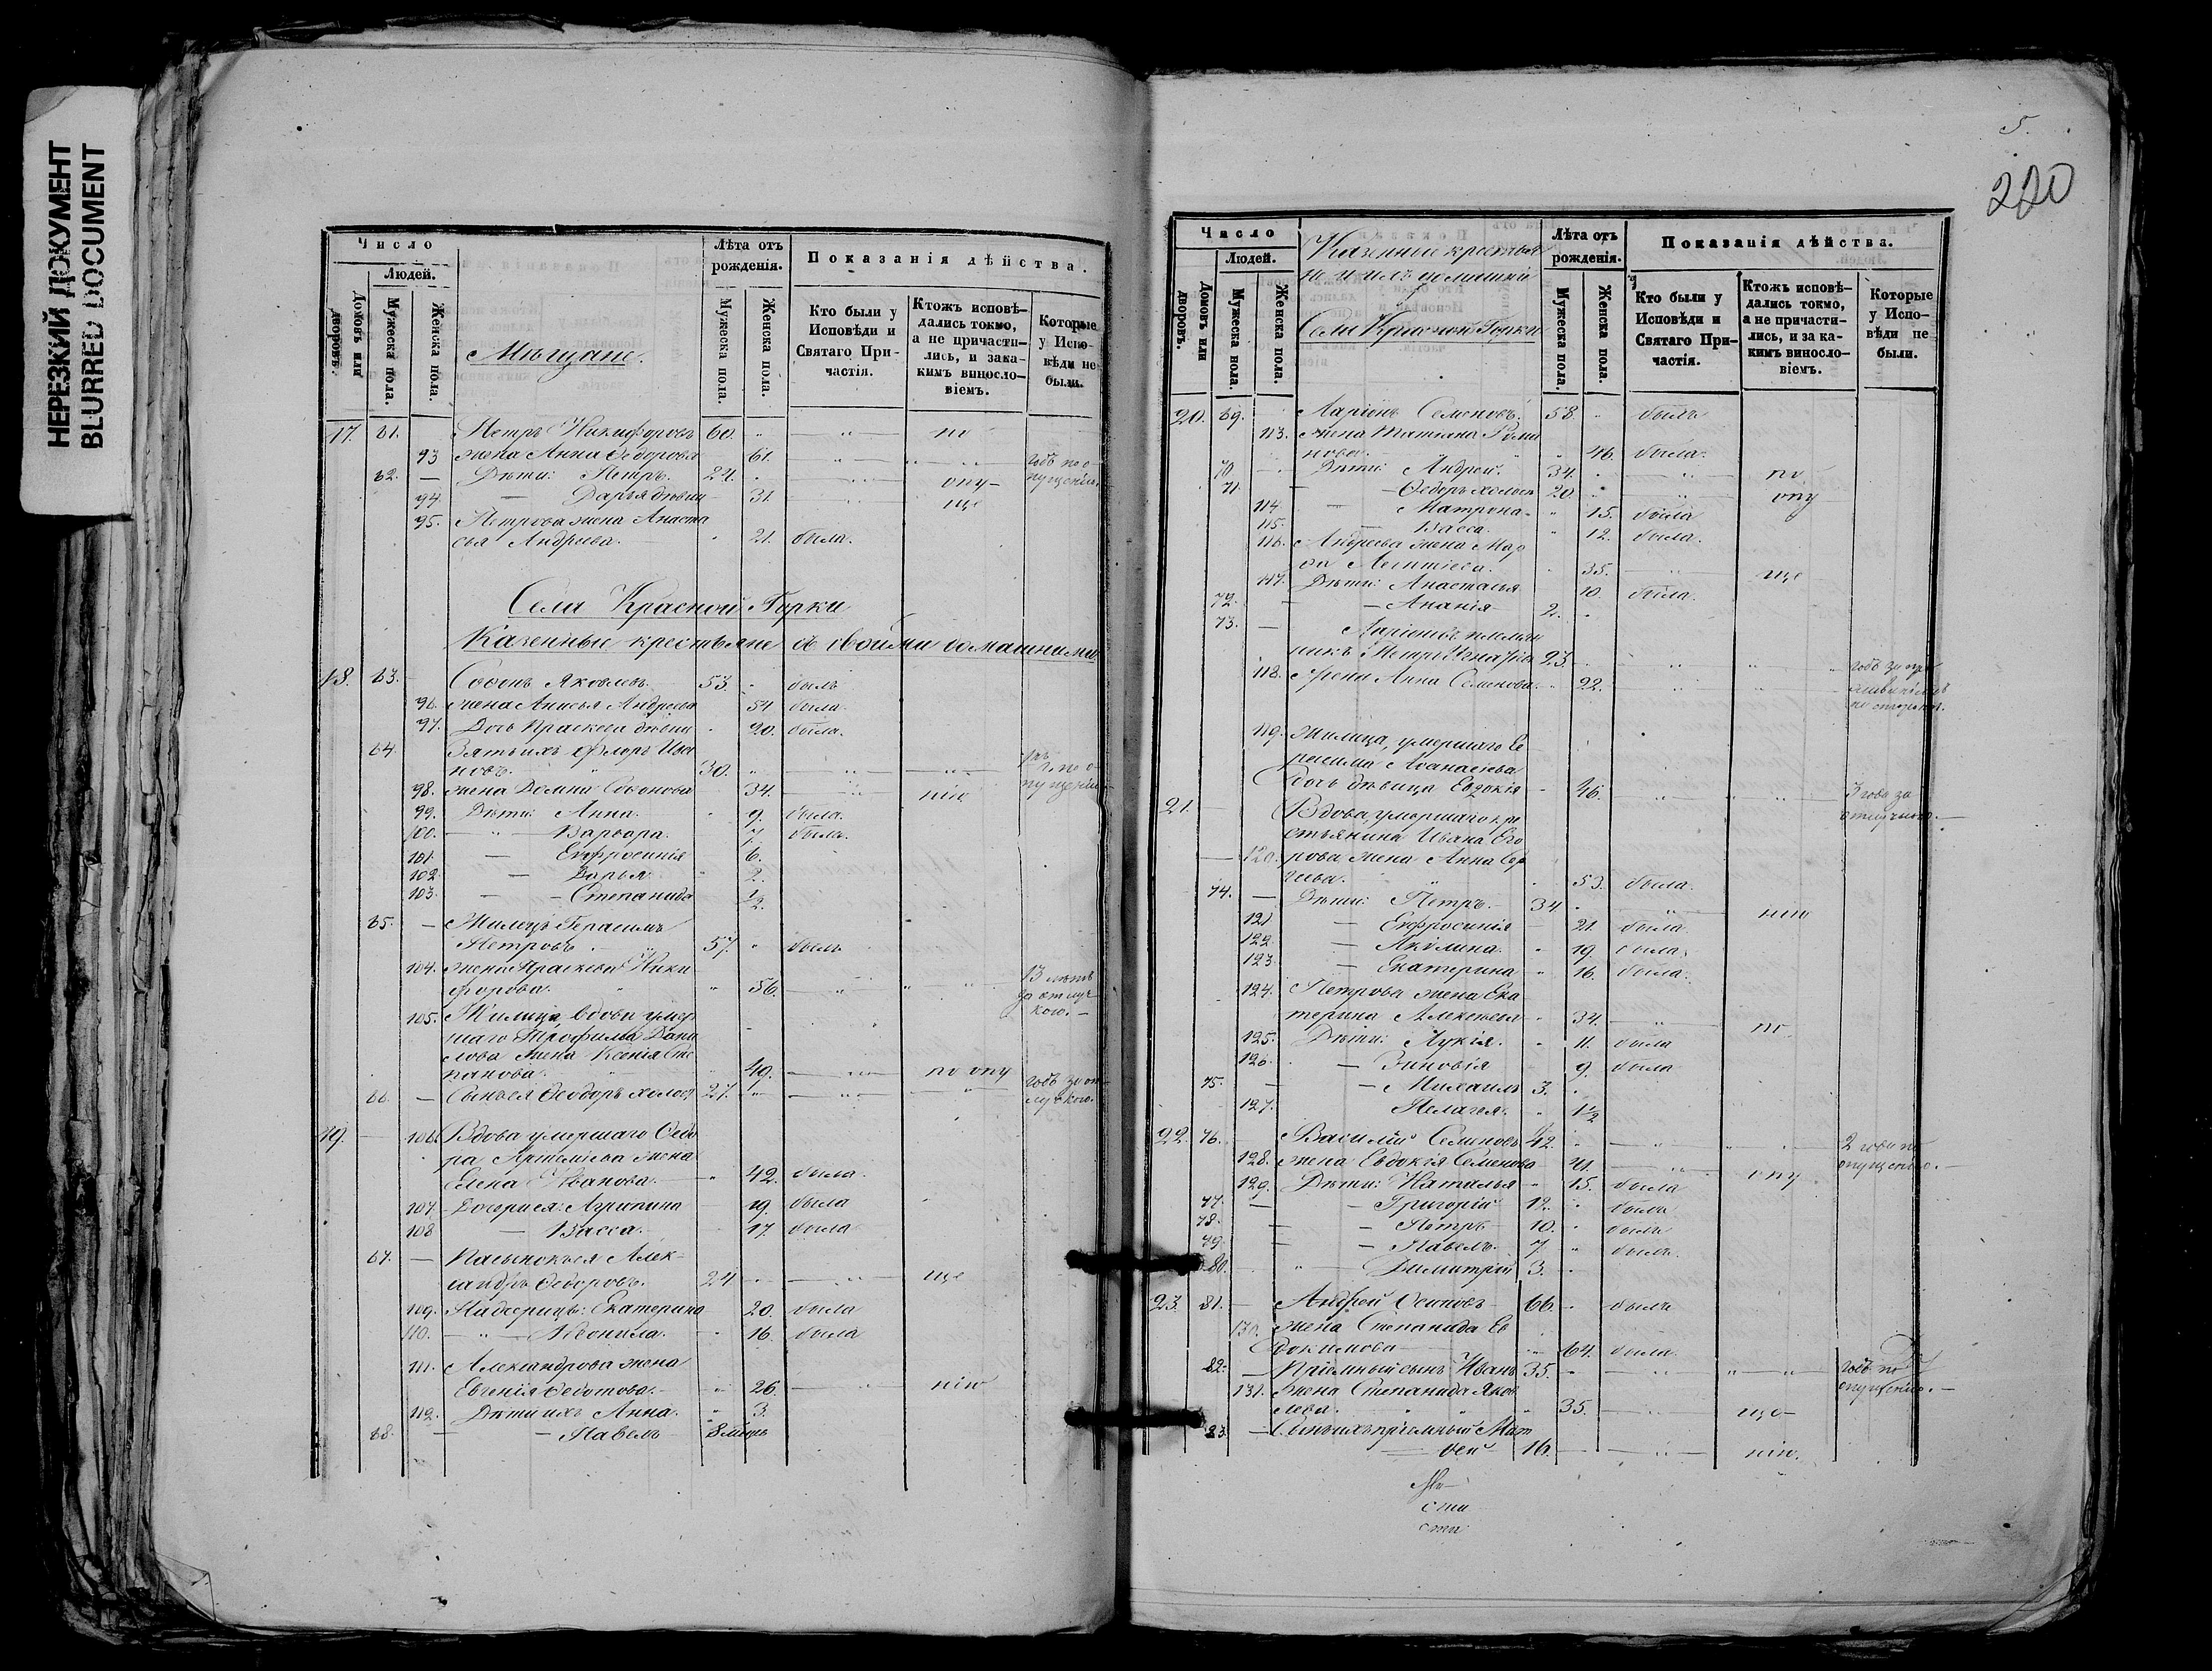 НЕРЕЗКИЙ ДОКУМЕНТ
BLURRED DOCUMENT
Число
Людей.
Домовъ или дворовъ.
Мужеска пола.
Женска пола.
Мѣщане.
Лѣта отъ рожденія.
Мужеска пола.
Женска пола.
Показанія дѣйства.
Кто были у Исповѣди и Святаго Причастія.
Ктожъ исповѣдались токмо, а не причастились, и за какимъ винословіемъ.
Которые у Исповѣди не были.
17. 61. Петръ Никифоровъ 60. по
93 жена Анна Ѳедорова 61. годъ по о-
62. Дѣти: Петръ. 24. опу- пущенію
94. Дарья дѣвица 31. ще
95. Петрова жена Анаста
сья Андреева. 21. была.
Села Красной Горки
Казенные крестьяне съ своими домашними
18. 63. Софонъ Яковлевъ 53. былъ
96. жена Анисья Андреева 54 была.
97. Дочь Праскева дѣвица 20. была.
64. Зять ихъ Флоръ Ива
новъ. 30. по о-
98. жена Домна Софонова 34. нію пущенію
99. Дѣти: Анна. 9. была.
100. Варвара. 7. была.
101. Евфросинія 6.
102 Дарья. 2.
103. Степанида 1/2.
65. Жилецъ Герасимъ
Петровъ. 57. былъ
104. жена Праскева Ники
форова. 56. 13 лѣтъ за отлуч
105. Жилица вдова умер кою.
шаго Трофима Дани
лова жена Ксенія Сте
панова. 49. по опу
66. Сынъ ея Ѳеодоръ холост 27. годъ за от лучкою.
19. 106. Вдова умершаго Ѳедо
ра Артемьева жена
Елена Иванова. 42. была.
107 Дочери ея: Агрипина 19. была
108 Васса. 17. была
67. Пасынокъ ея Алек-
сандръ Ѳедоровъ. 24 ще
109. Падчерицы: Екатерина 20. была
110. Неонила. 16. была
111. Александрова жена
Евгенія Ѳедотова. 26. нію
112. Дѣти ихъ Анна. 3.
68. Павелъ 8 мѣсяц
5.
220
Число
Людей.
Домовъ или дворовъ.
Мужеска пола.
Женска пола.
Казенные крестья
не и ихъ домашніе
Села Красной Горки
Лѣта отъ рожденія.
Мужеска пола.
Женска пола.
Показанія дѣйства.
Кто были у Исповѣди и Святаго Причастія.
Ктожъ исповѣдались токмо, а не причастились, и за какимъ винословіемъ.
Которые у Исповѣди не были.
20. 69. Ларіонъ Семеновъ. 58. былъ
113. жена Татіана Рома
нова. 46. была.
70 Дѣти: Андрей. 34. по
71. Ѳедоръ холост 20. опу
114 Матрона. 15. была
115. Васса. 12. была.
116. Андреева жена Мар
ѳа Леонтіева. 35. ще
117. Дѣти: Анастасья 10. была.
72. Ананія 2.
73. Ларіоновъ племян
никъ Петръ 23. годъ за
118. жена Анна Семенова. 22.
119. Жилица, умершаго Ге
расима Аѳанасьева
дочь дѣвица Евдокія 46. 3 года за
21. Вдова, умершаго кре отлучкою.
стьянина Ивана Его
120. рова жена Анна Сер
гѣева. 53. была.
74. Дѣти: Петръ. 34 нію
121 Евфросинія 21. была.
122. Акилина. 19. была.
123 Екатерина 16. была.
124. Петрова жена Ека
терина Алексѣева 34. по
125. Дѣти: Лукія. 11. была
126. Зиновія 9. была
75. Михаилъ 3.
127. Пелагея. 1 1/2
22. 76. Василій Семеновъ 42. 2 года по
128. жена Евдокія Семенова 41. опу опущенію.
129. Дѣти: Наталья 15. была
77. Григорій 12. былъ
78. Петръ 10. былъ
79. Павелъ. 7. былъ.
80. Димитрій 3.
23. 81. Андрей Осиповъ 66. былъ
130. жена Степанида Ев
докимова 64. была
82. Пріемный сынъ Иванъ 35. годъ по
131. жена Степанида Яков опущенію.
лева. 35. ще-
83. Сынъ ихъ пріемный Мат
вей 16. нію.